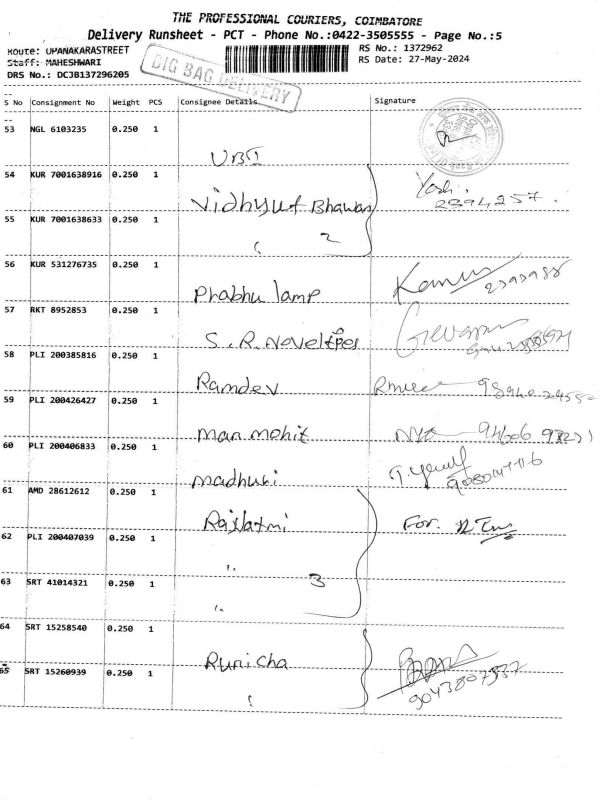 THE PROFESSIONAL COURIERS, COIMBATORE
Delivery Runsheet - PCT - Phone No.:0422-3505555 - Page No.:5
Route: UPANAKARASTREET
RS No.: 1372962
Staff: MAHESHWARI
RS Date: 27-May-2024
DRS No.: DCJB137296205
BIG BAG DELIVERY
S No Consignment No Weight PCS Consignee Details Signature
53 NGL 6103235 0.250 1
UBI
54 KUR 7001638916 0.250 1
Vidhyut Bhawan
Yosh.
2394257.
55 KUR 7001638633 0.250 1
" 2
56 KUR 531276735 0.250 1
Prabhu lamp
57 RKT 8952853 0.250 1
S.R. Novelties
58 PLI 200385816 0.250 1
Ramdev
59 PLI 200426427 0.250 1
Man mohit
60 PLI 200406833 0.250 1
Madhuri
61 AMD 28612612 0.250 1
Rajlaxmi
For.
62 PLI 200407039 0.250 1
"
3
63 SRT 41014321 0.250 1
"
64 SRT 15258540 0.250 1
Runicha
65 SRT 15260939 0.250 1
"
9043807537